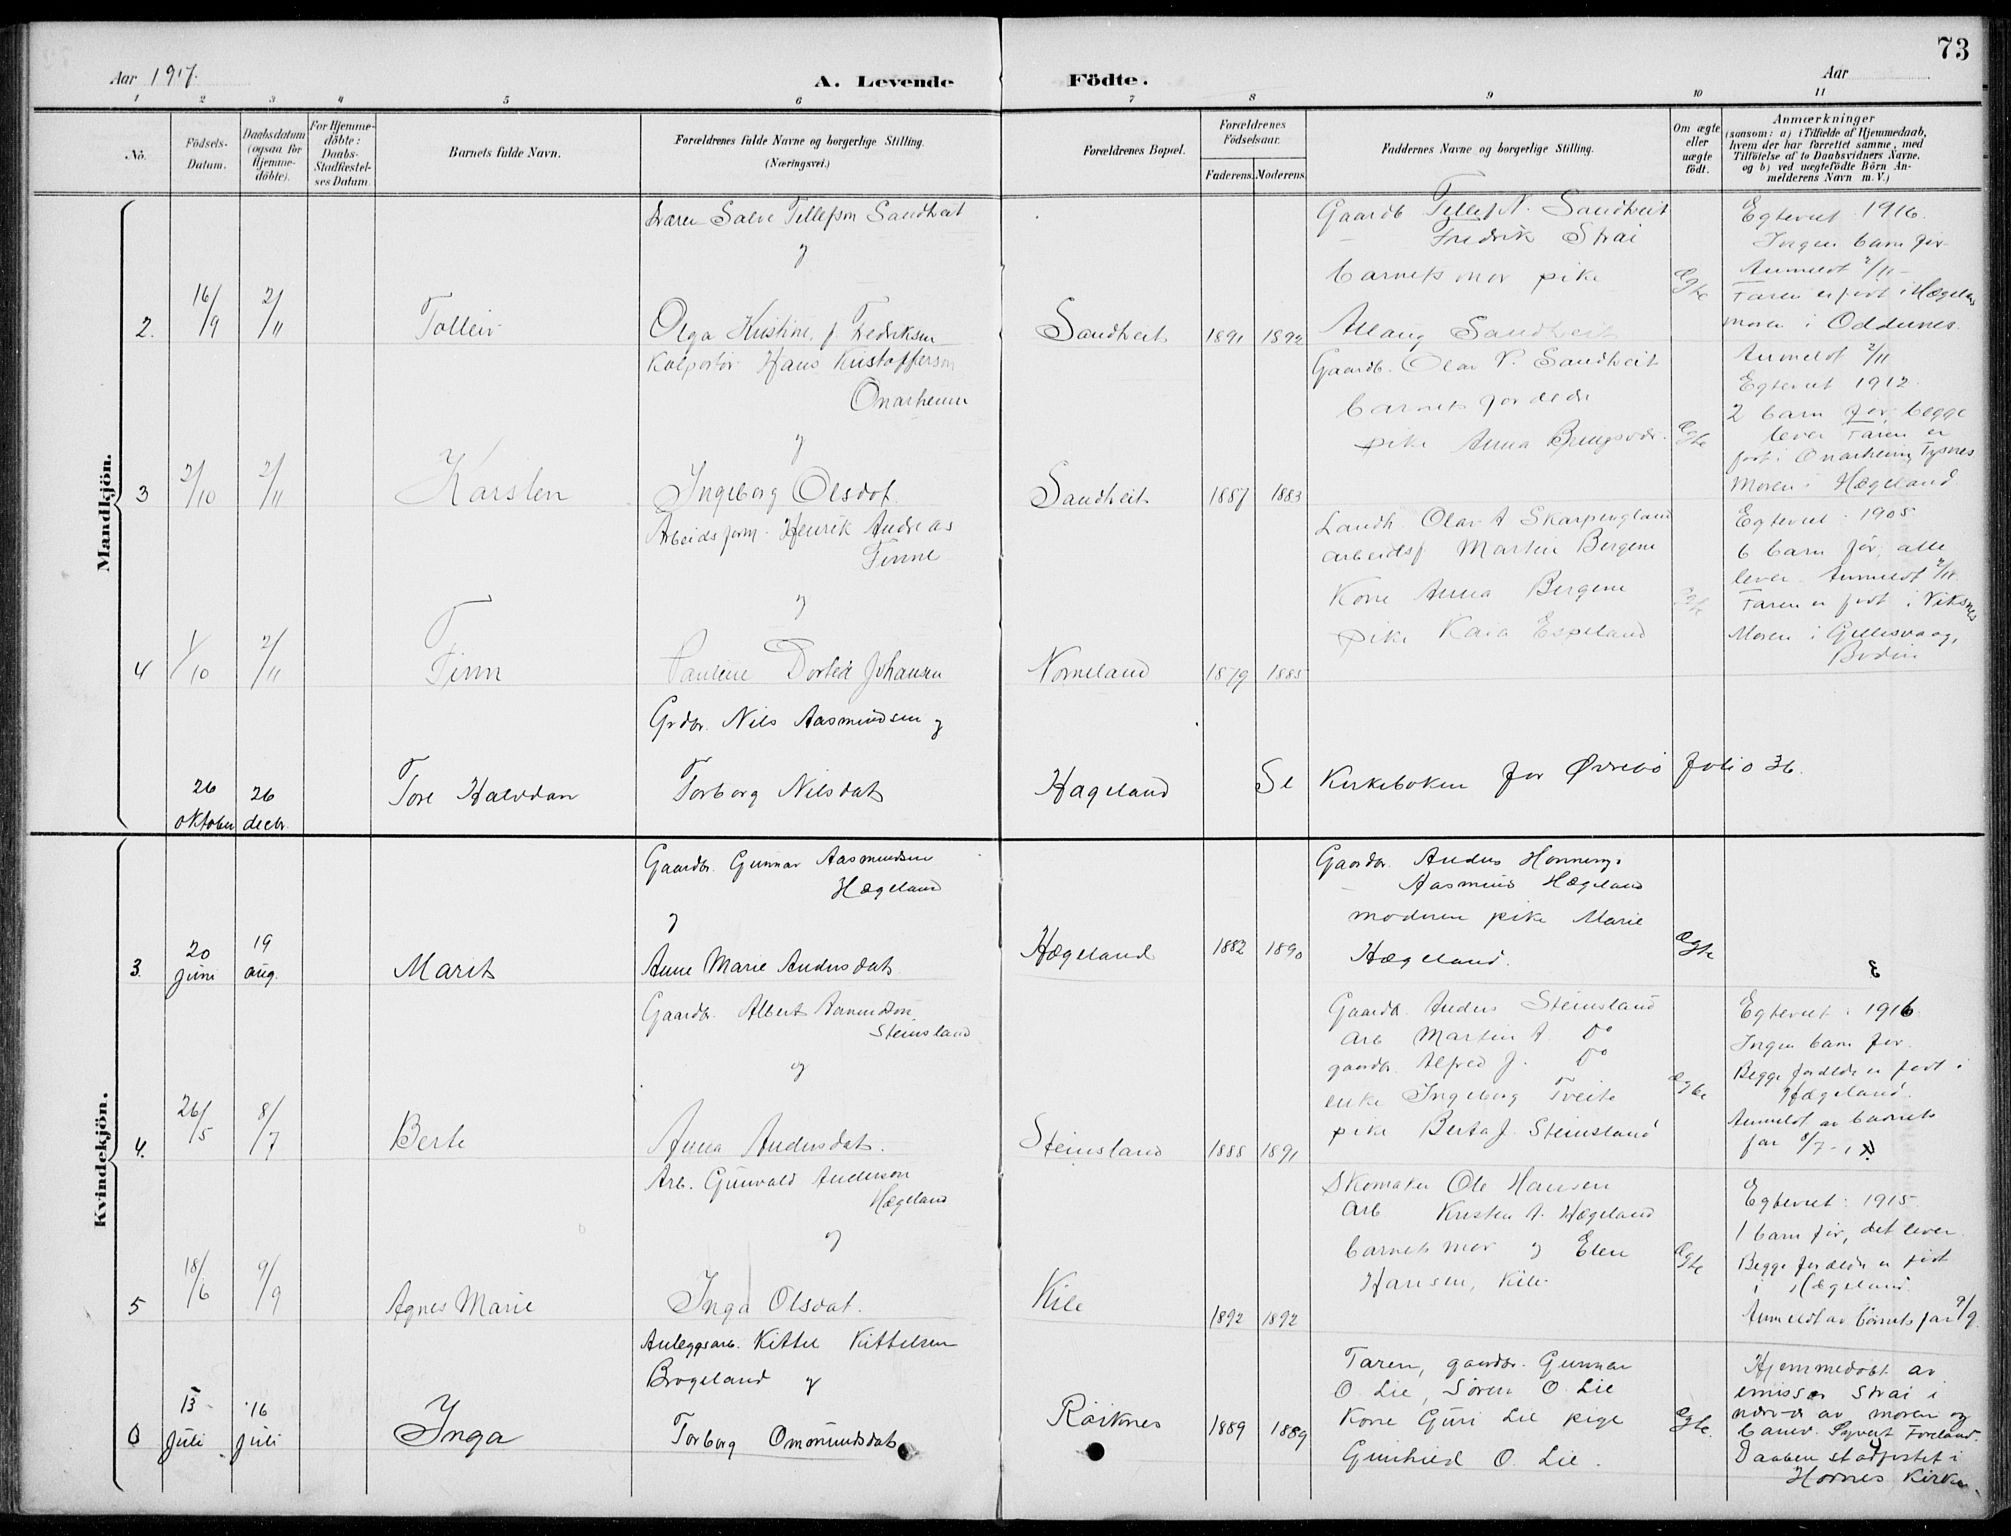 73
Aar 1917.
A. Levende Födte.
Aar
1 2 3 4 5 6 7 8 9 10 11
No.
Födsels-
Datum.
Daabsdatum
(ogsaa for
Hjemme-
döbte).
For Hjemme-
döbte:
Daabs-
Stadfæstel-
ses Datum
Barnets fulde Navn.
Forældrenes fulde Navne og borgerlige Stilling.
(Næringsvei.)
Forældrenes Bopæl.
Forældrenes
Födselsaar.
Faderens. Moderens.
Faddernes Navne og borgerlige Stilling.
Om ægte
eller
uægte
födt.
Anmærkninger
(saasom: a) i Tilfælde af Hjemmedaab,
hvem der har forrettet samme, med
Tilföielse af to Daabsvidners Navne,
og b) ved uægtefödte Börn An-
melderens Navn m. V.)
Mandkjön.
2.
16/9
2/11
Tolleiv
Salve Tellefsen Sandheit
og
Olga Kristine f. Fredriksen
Sandheit
1891 1892
Gaardb Tellef N. Sandheit
— Fredrik Strai
barnets mor pike
Aslaug Sandheit
Ægte
Egteviet 1916.
Ingen barn før
Anmeldt 2/11 -
Faren er født i Hægeland
moren i Oddernes.
3
2/10
2/11
Karsten
Kolportør Hans Kristoffersen
Onarheim
og
Ingeborg Olsdot.
Sandheit
1887 1883
Gaardb. Olav V. Sandheit
barnets forældre
pike Anna
Ægte
Anmeldt 2/11
Egteviet 1912.
2 barn før, begge
lever Faren er
født i Onarheim, Tysnes
Moren i Hægeland
4
1/10
2/11
Finn
Arbeidsform. Henrik Andreas
Finne
og
Pauline Dortea Johansen
Norneland
1879 1885
Landh. Olav A Skarpengland
arbeidsf Martin Bergene
Kone Anna Bergene
pike Kaia Espeland
Ægte
Egteviet 1905
6 barn før, alle
lever. Anmeldt 2/11.
Faren er født i Viksnes
Moren i Gillesvaag,
Bodin
26
oktober
26
decbr.
Tore Halvdan
Grdbr. Nils Aasmundsen og
Torborg Nilsdat
Hageland
Se Kirkeboken for Øvrebø folio 36.
Kvindekjön.
3.
20
juni
19
aug.
Marit
Gaardbr. Gunnar Aasmundsen
Hægeland
og
Anne Marie Andersdat.
Hægeland
1882 1890
Gaardbr. Anders
— Aasmund Hægeland
moderen pike Marie
Hægeland.
Ægte
4.
26/5
8/7
Berte
Gaardbr. Albert
Steinsland
og
Anna Andersdat.
Steinsland
1888 1891
Gaardbr. Anders Steinsland
Arb Martin A. Do
gaardbr. Alfred J. Do
enke Ingeborg Tveite
pike Berta J. Steinsland
Ægte
Egteviet 1916
Ingen barn før.
Begge foreldre er født i
Hægeland.
Anmeldt av barnets
far 8/7
5
18/6
9/9
Agnes Marie
Arb. Gunvald Anderson
Hægeland
og
Inga Olsdat.
Kile
1892 1892
Skomaker Ole Hansen
Arb Kristen A. Hægeland
barnets mor og Elen
Hansen, Kile
Ægte
Egteviet 1915
1 barn før, det lever
Begge foreldre er født
i Hægeland.
Anmeldt av barnets far 9/9.
13
juli
16
juli
Inga
Anleggsarb. Kittel Kittelsen
Brogeland og
Torborg Omonundsdat
Røiknes
1889 1889
Faren, gaardbr. Gunnar
O. Lie, Søren O. Lie
Kone Guri Lie pige
Gunhild O. Lie.
Ægte.
Hjemmedøbt av
emissær Strai i
nærvær av moren og
Syvert Foreland.
Daaben stadfestet i
Hornes Kirke.